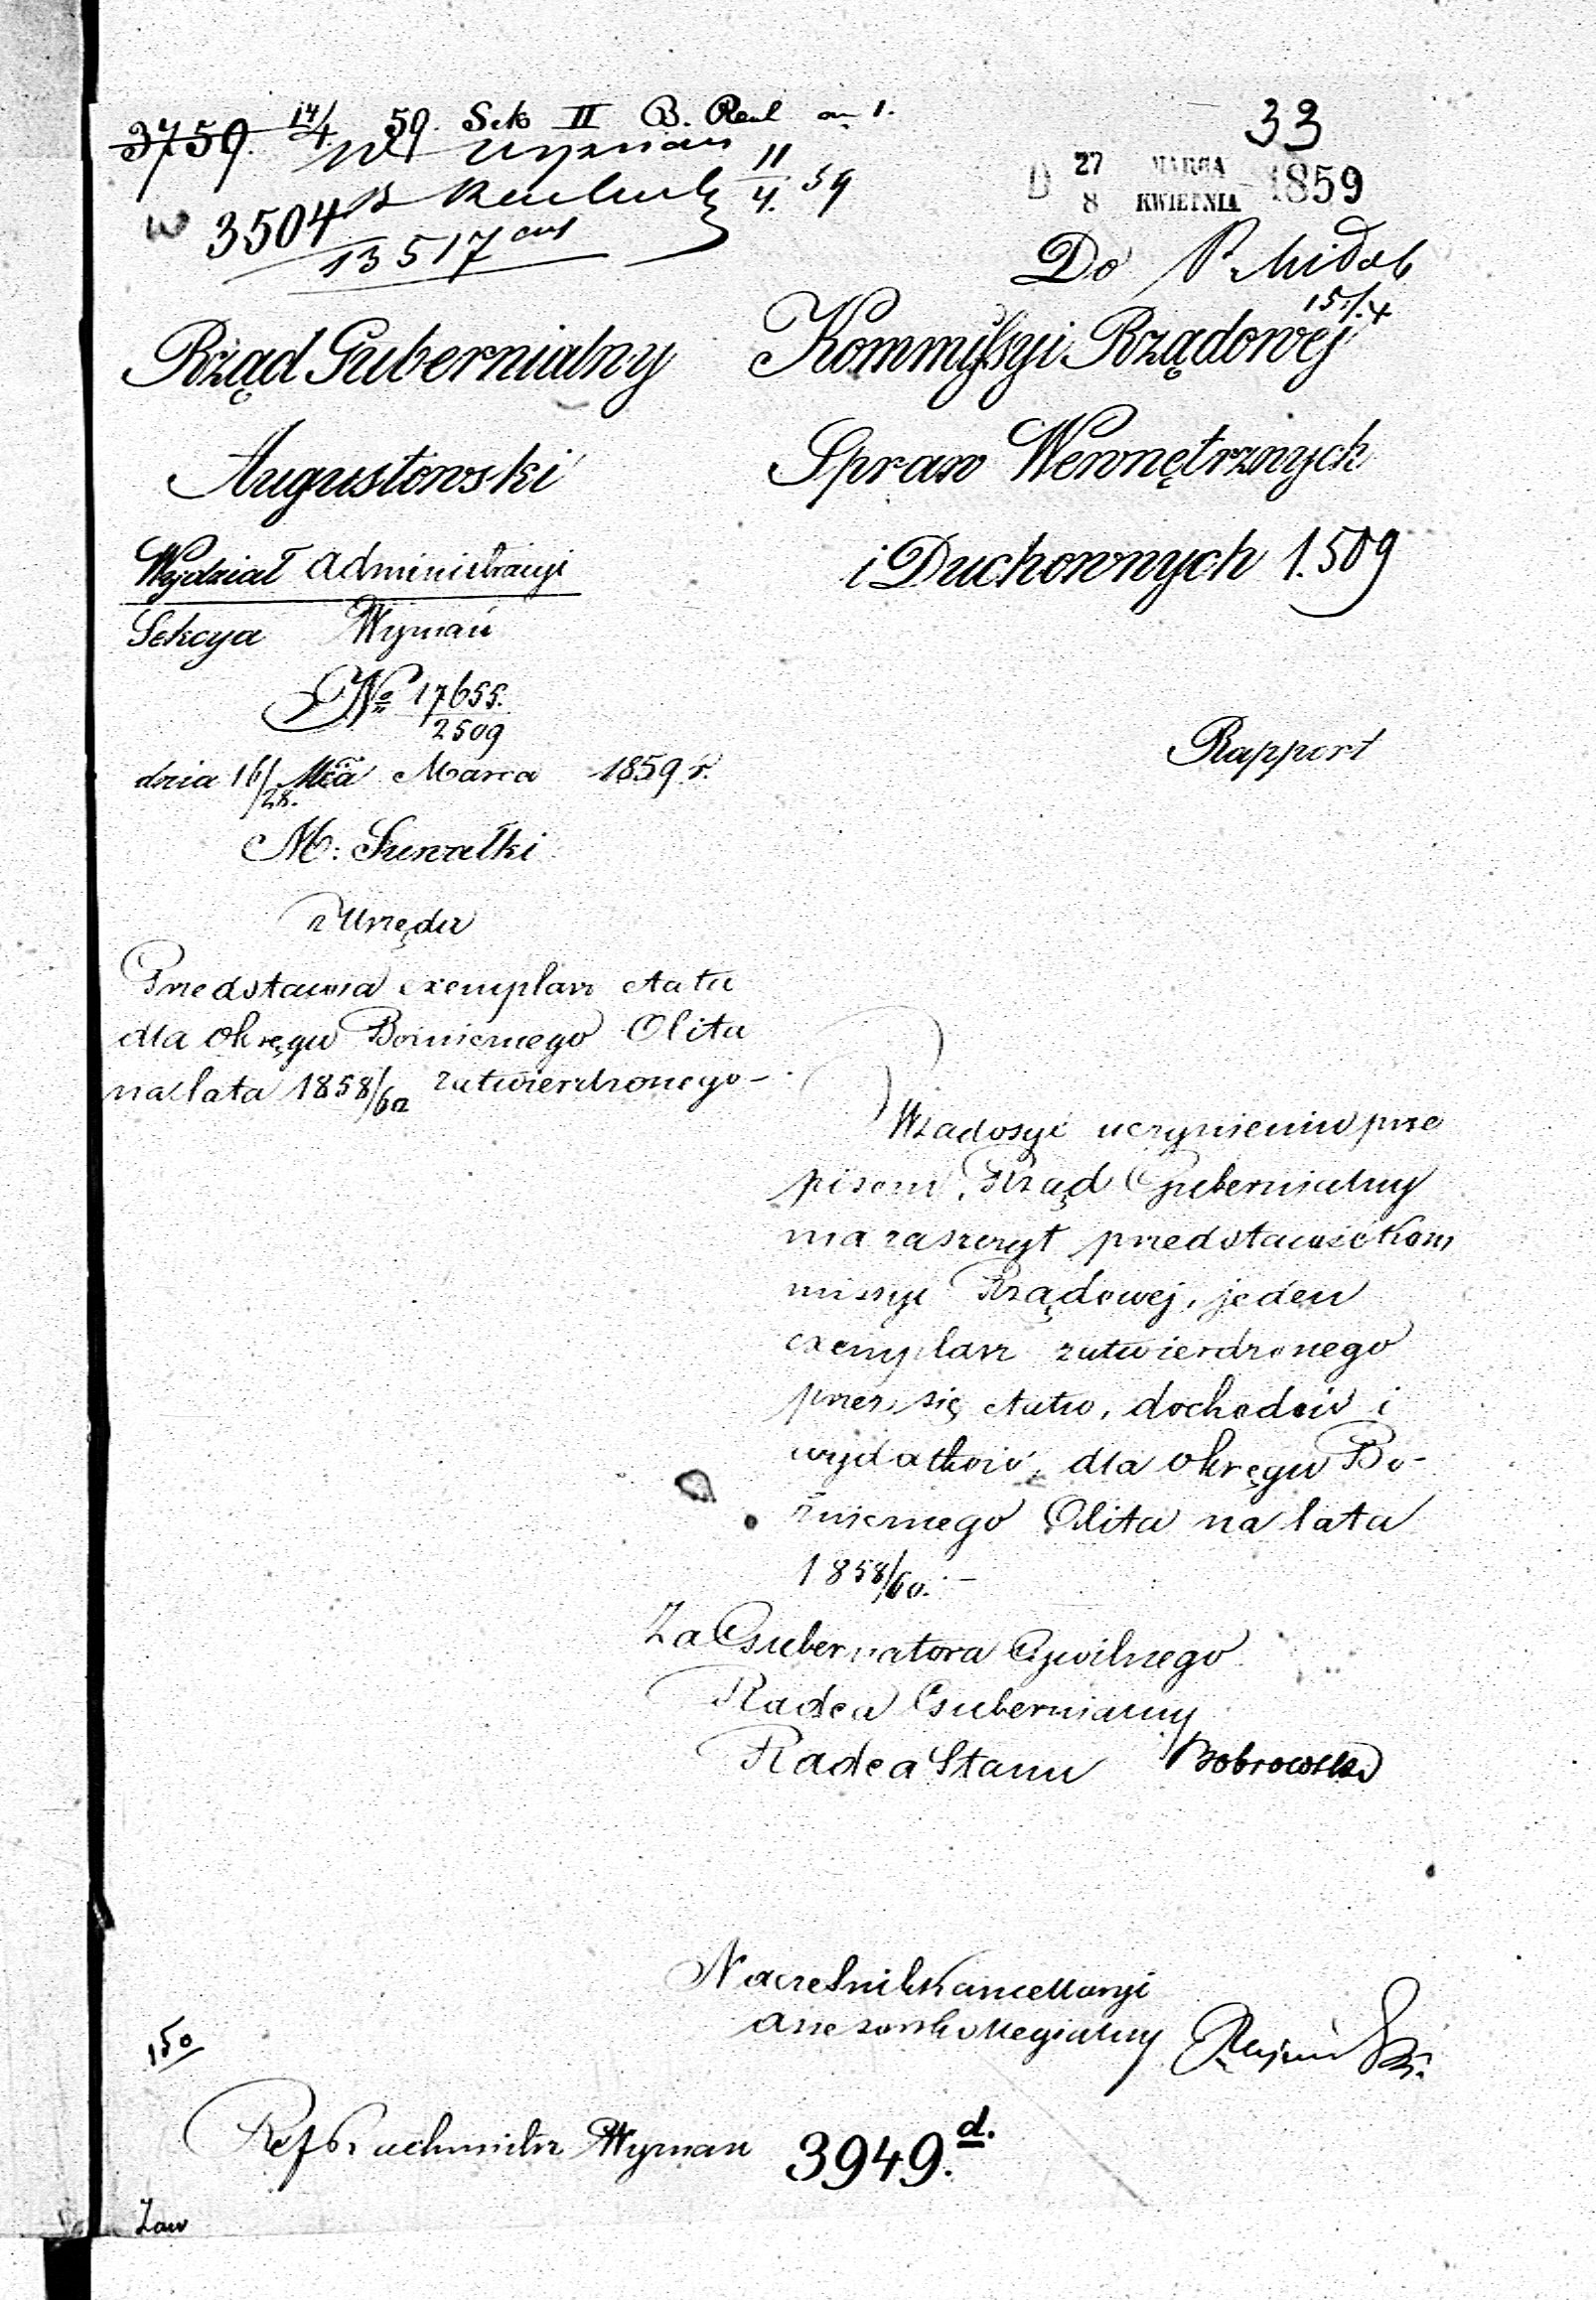 33
3759. 14/4 59. Sek II B.
11/4. 59
3504
13517
D 27 MARCA 1859
8 KWIETNIA
Do
15/4
Rząd Gubernialny
Augustowski
Wydział Administracyi
Sekcya Wyznań
No 17655.
2509
dnia 16/28. Mca Marca 1859 r.
M: Suwałki
z Urzędu
Przedstawia exemplarz etatu
dla okręgu Bożnicznego Olita
na lata 1858/60 zatwierdzonego -
Kommyssyi Rządowej
Spraw Wewnętrznych
i Duchownych 1.509
Rapport
W zadosyć uczynieniu prze
pisom, Rząd Gubernialny
ma zaszczyt przedstawić Kom
missyi Rządowej, jeden
exemplarz zatwierdzonego
przez się etatu, dochodów i
wydatków, dla okręgu Bo-
żnicznego Olita na lata
1858/60. -
Za Gubernatora Cywilnego
Radca Gubernialny
Radca Stanu Bobrowski
Naczelnik Kancellaryi
Assessor Kollegialny
150
3949. d.